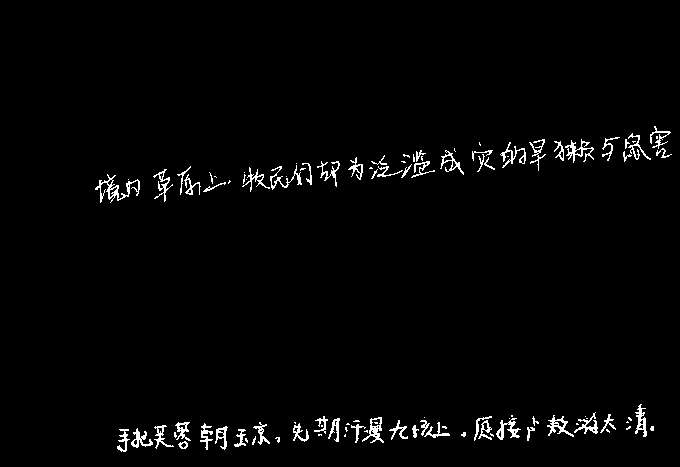 境内草原上牧民们却为泛滥成灾的旱獭与鼠害
手把芙蓉朝玉京。先期汗漫九垓上。愿接卢敖游太清。